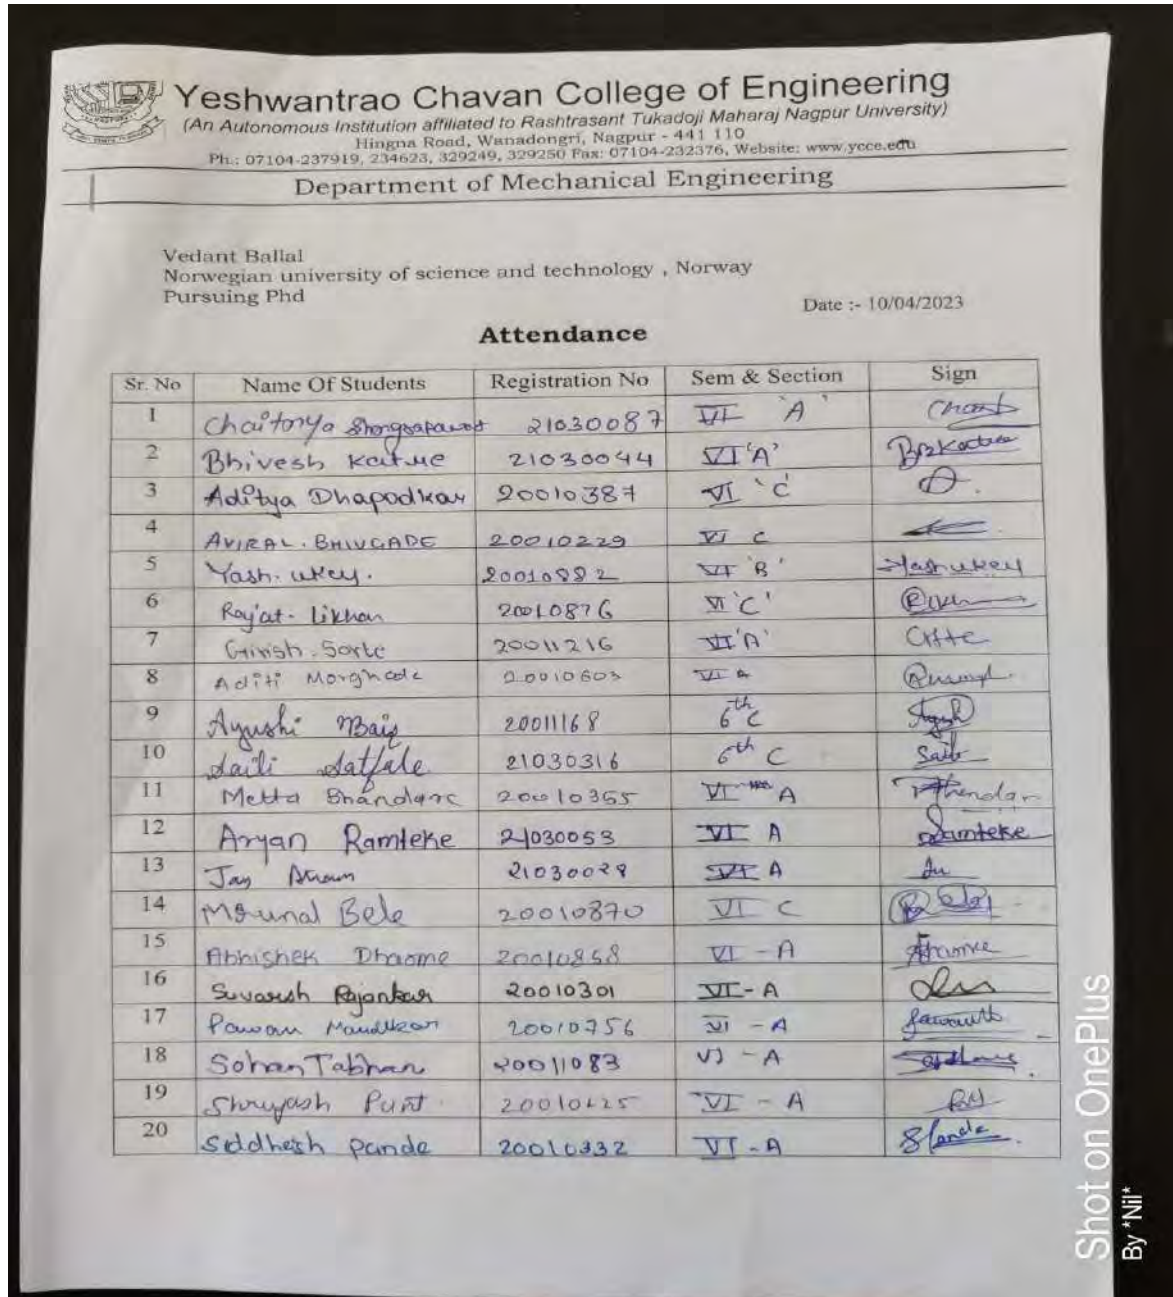 Yeshwantrao Chavan College of Engineering
(An Autonomous Institution affiliated to Rashtrasant Tukadoji Maharaj Nagpur University)
Hingna Road, Wanadongri, Nagpur - 441 110
Ph.: 07104-237919, 234623, 329249, 329250 Fax: 07104-232376, Website: www.ycce.edu
Department of Mechanical Engineering
Vedant Ballal
Norwegian university of science and technology , Norway
Pursuing Phd
Date :- 10/04/2023
Attendance
Sr. No Name Of Students Registration No Sem & Section Sign
1 21030087 VI 'A'
2 Bhivesh 21030044 VI 'A'
3 Aditya Dhapodkar 20010387 VI 'C'
4 AVIRAL. BHIVGADE 20010229 VI C
5 Yash. Ukey. 20010882 VI 'B' Yash Ukey
6 Rajat. Likhar 20010876 VI 'C'
7 Girish. Sorte 20011216 VI 'A'
8 Aditi Morghade 20010603 VI A
9 Ayushi 20011168 6th C
10 Saili Satfale 21030316 6th C
11 20010365 VI A
12 Aryan Ramteke 21030053 VI A Ramteke
13 Jay VI A
14 Mrunal Bele 20010870 VI C
15 Abhishek VI - A
16 Rajankar 20010301 VI - A
17 Pawan 20010756 VI - A
18 Sohan Tabhan 20011083 VI - A
19 Shreyash VI - A
20 Siddhesh Pande 20010332 VI - A
Shot on OnePlus
By *Nil*